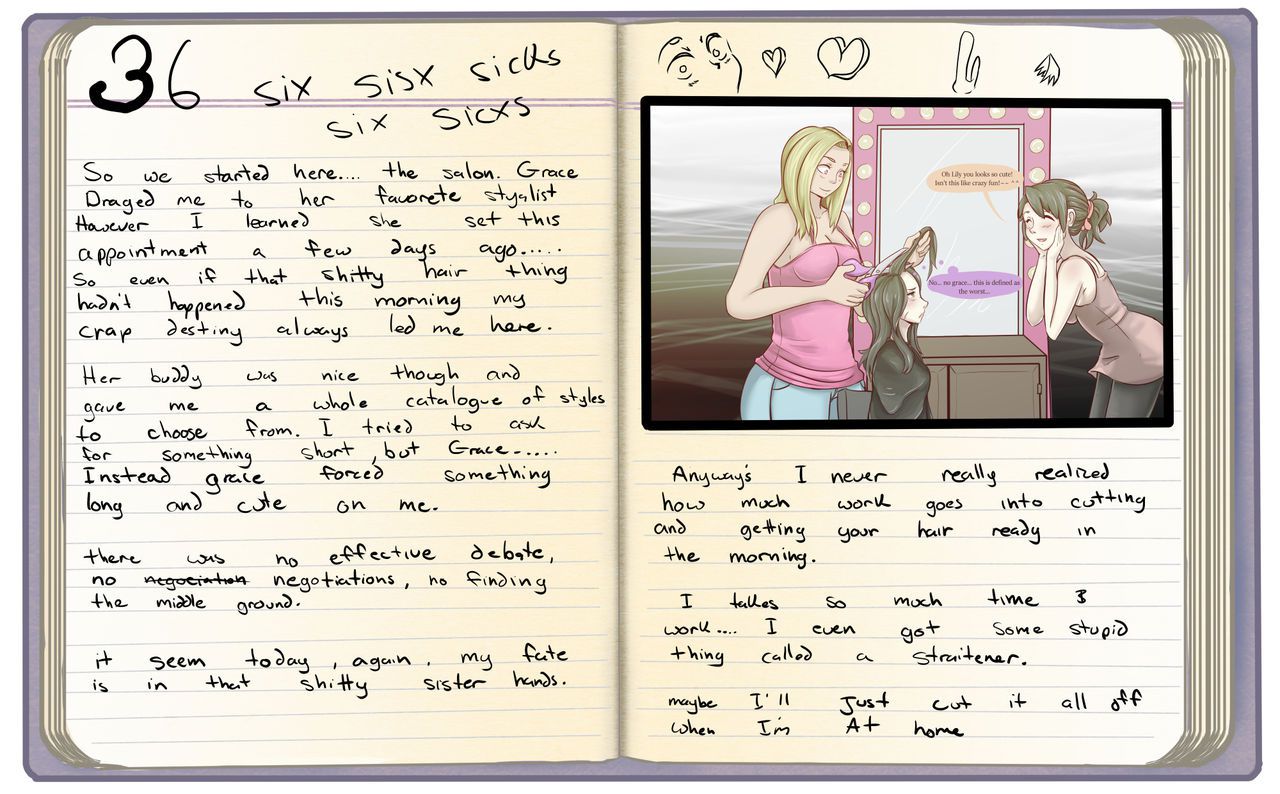 36 six sisx sicks
six sicxs
So we started here.... the salon. Grace
Draged me to her favorete stylist
However I learned she set this
appointment a few days ago.....
So even if that shitty hair thing
hadn't happened this morning my
crap destiny always led me here.
Her buddy was nice though and
gave me a whole catalogue of styles
to choose from. I tried to ask
for something short, but Grace......
Instead grace forced something
long and cute on me.
there was no effective debate,
no negociation negotiations, no finding
the middle ground.
it seem today, again, my fate
is in that shitty sister hands.
Oh Lily you looks so cute!
Isn't this like crazy fun!~~ ^^
No... no grace... this is defined as
the worst...
Anyway's I never really realized
how much work goes into cutting
and getting your hair ready in
the morning.
I takes so much time &
work.... I even got some stupid
thing called a straitener.
maybe I'll just cut it all off
when I'm At home